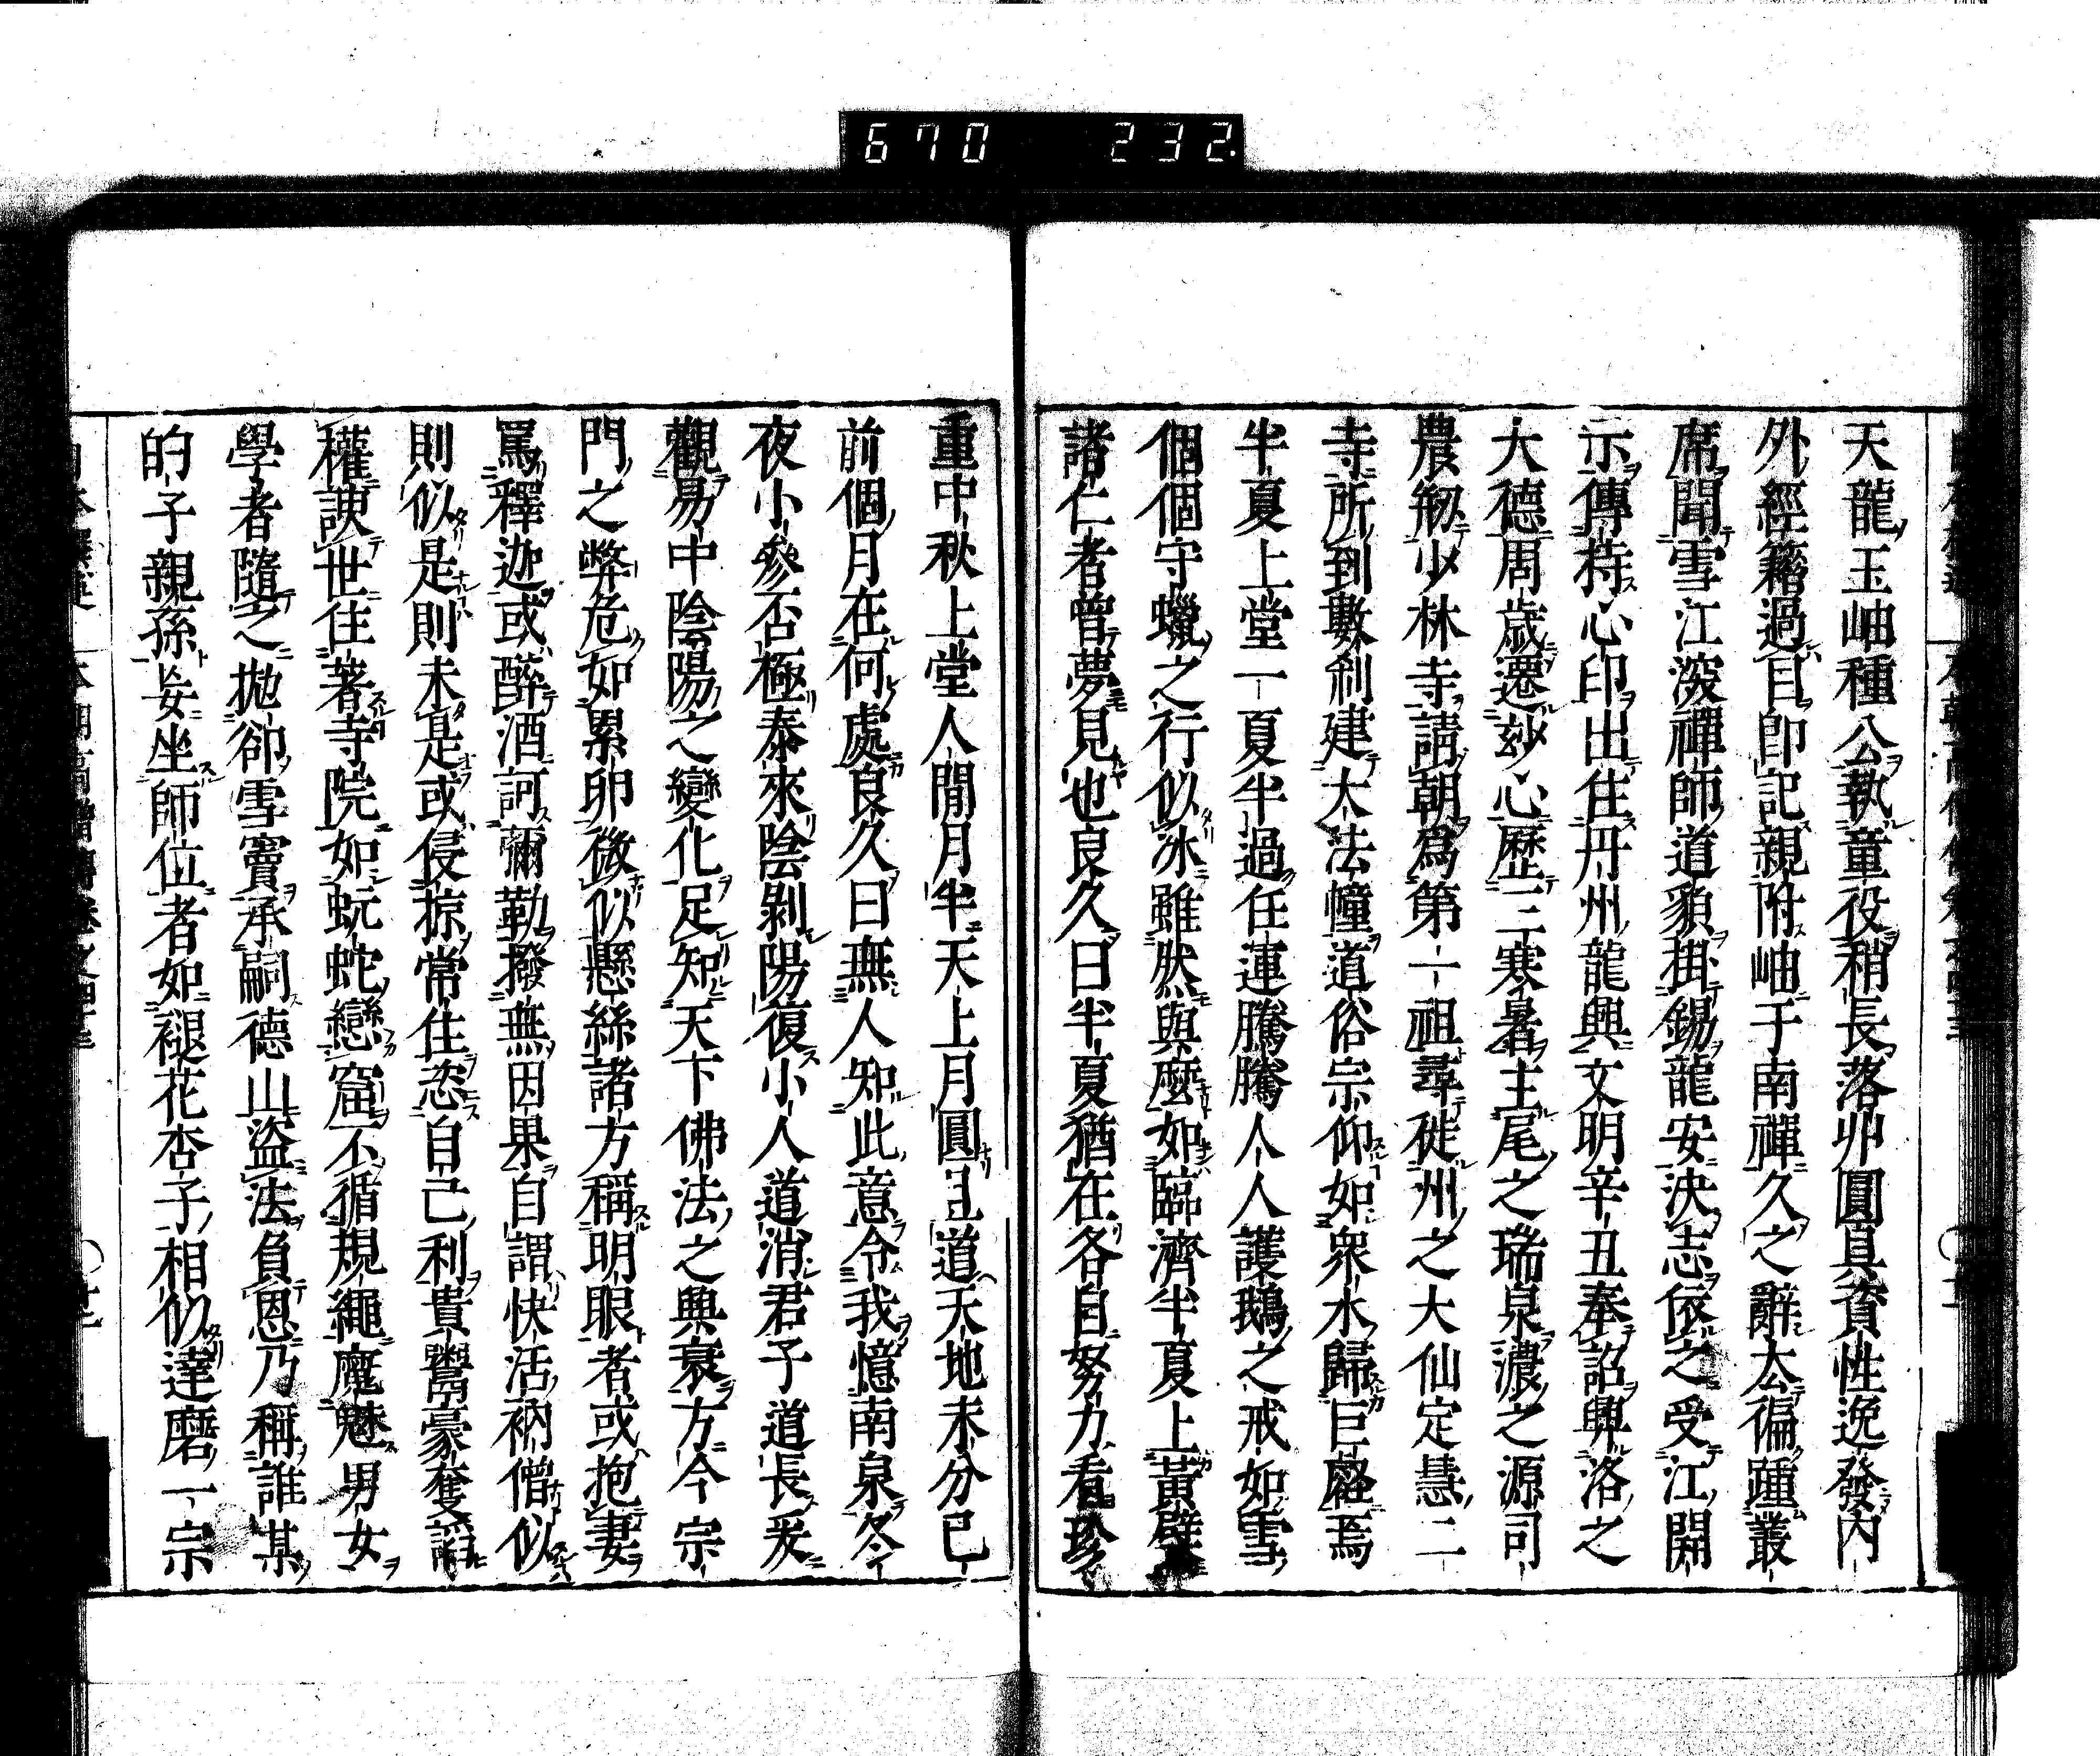 670 232.
天龍玉岫種公執童役稍長落丱圓具資性逸發內
外經籍過目卽記親附岫于南禪久之辭去偏踵叢
席聞雪江深禪師道貌掛錫龍安決志依之受江開
示傳持心印出住丹州龍興文明辛丑奉詔興洛之
大德周歲遷妙心歷三寒暑主尾之瑞泉濃之源司
農剏少林寺請朝爲第一祖尋徙州之大仙定慧二
寺所到數刹建大法幢道俗宗仰如衆水歸巨壑焉
半夏上堂一夏半過任運騰騰人人護鵝之戒如雪
個個守蠟之行似冰雖然與麼如臨濟半夏上黃檗
諸仁者曾夢見也良久曰半夏猶在各自努力看珍
重中秋上堂人間月半天上月圓且道天地未分已
前個月在何處良久曰無人知此意令我憶南泉冬
夜小參否極泰來陰剝陽復小人道消君子道長爰
觀易中陰陽之變化足知天下佛法之興衰方今宗
門之弊危如累卵微似懸絲諸方稱明眼者或抱妻
罵釋迦或醉酒訶彌勒撥無因果自謂快活衲僧似
則似是則未是或侵掠常住恣自己利貴鬻豪奪
權諛世住著寺院如蚖蛇戀窟不循規繩魔魅男女
學者隨之拋卻雪竇承嗣德山盜法負恩乃稱誰某
的子親孫妄坐師位者如褪花杏子相似達磨一宗